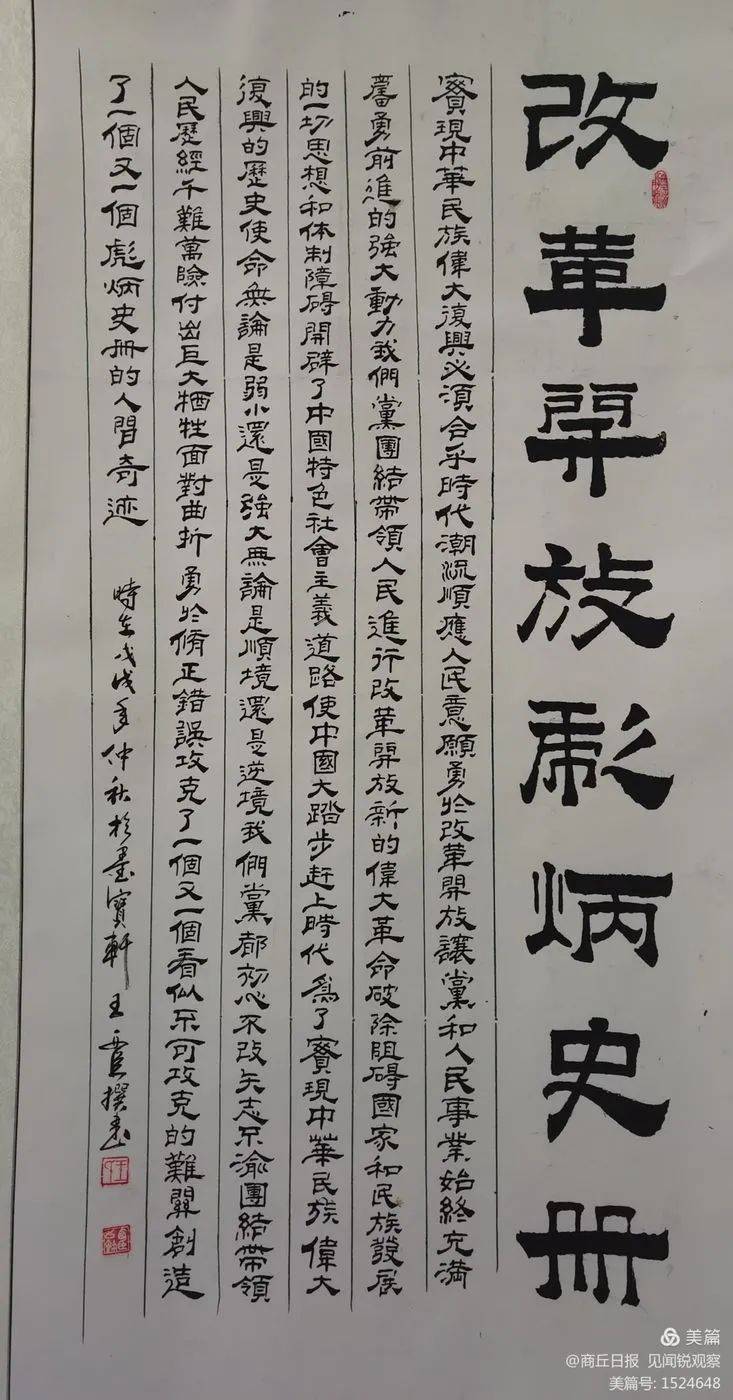 改革開放彪炳史册
實現中華民族偉大復興必須合乎時代潮流順應人民意願勇於改革開放讓黨和人民事業始終充満
奮勇前進的強大動力我們黨團結帶領人民進行改革開放新的偉大革命破除阻碍國家和民族發展
的一切思想和体制障碍開辟了中國特色社會主義道路使中國大踏步赶上時代為了實現中華民族偉大
復興的歷史使命無論是弱小還是強大無論是順境還是逆境我們黨都初心不改矢志不渝團結帶領
人民歷經千難萬險付出巨大犧牲面對曲折勇於脩正錯誤攻克了一個又一個看似不可攻克的難關創造
了一個又一個彪炳史册的人間奇迹 時在戊戌年仲秋於墨寶軒王 撰書
美篇
@商丘日报 见闻锐观察
美篇号: 1524648